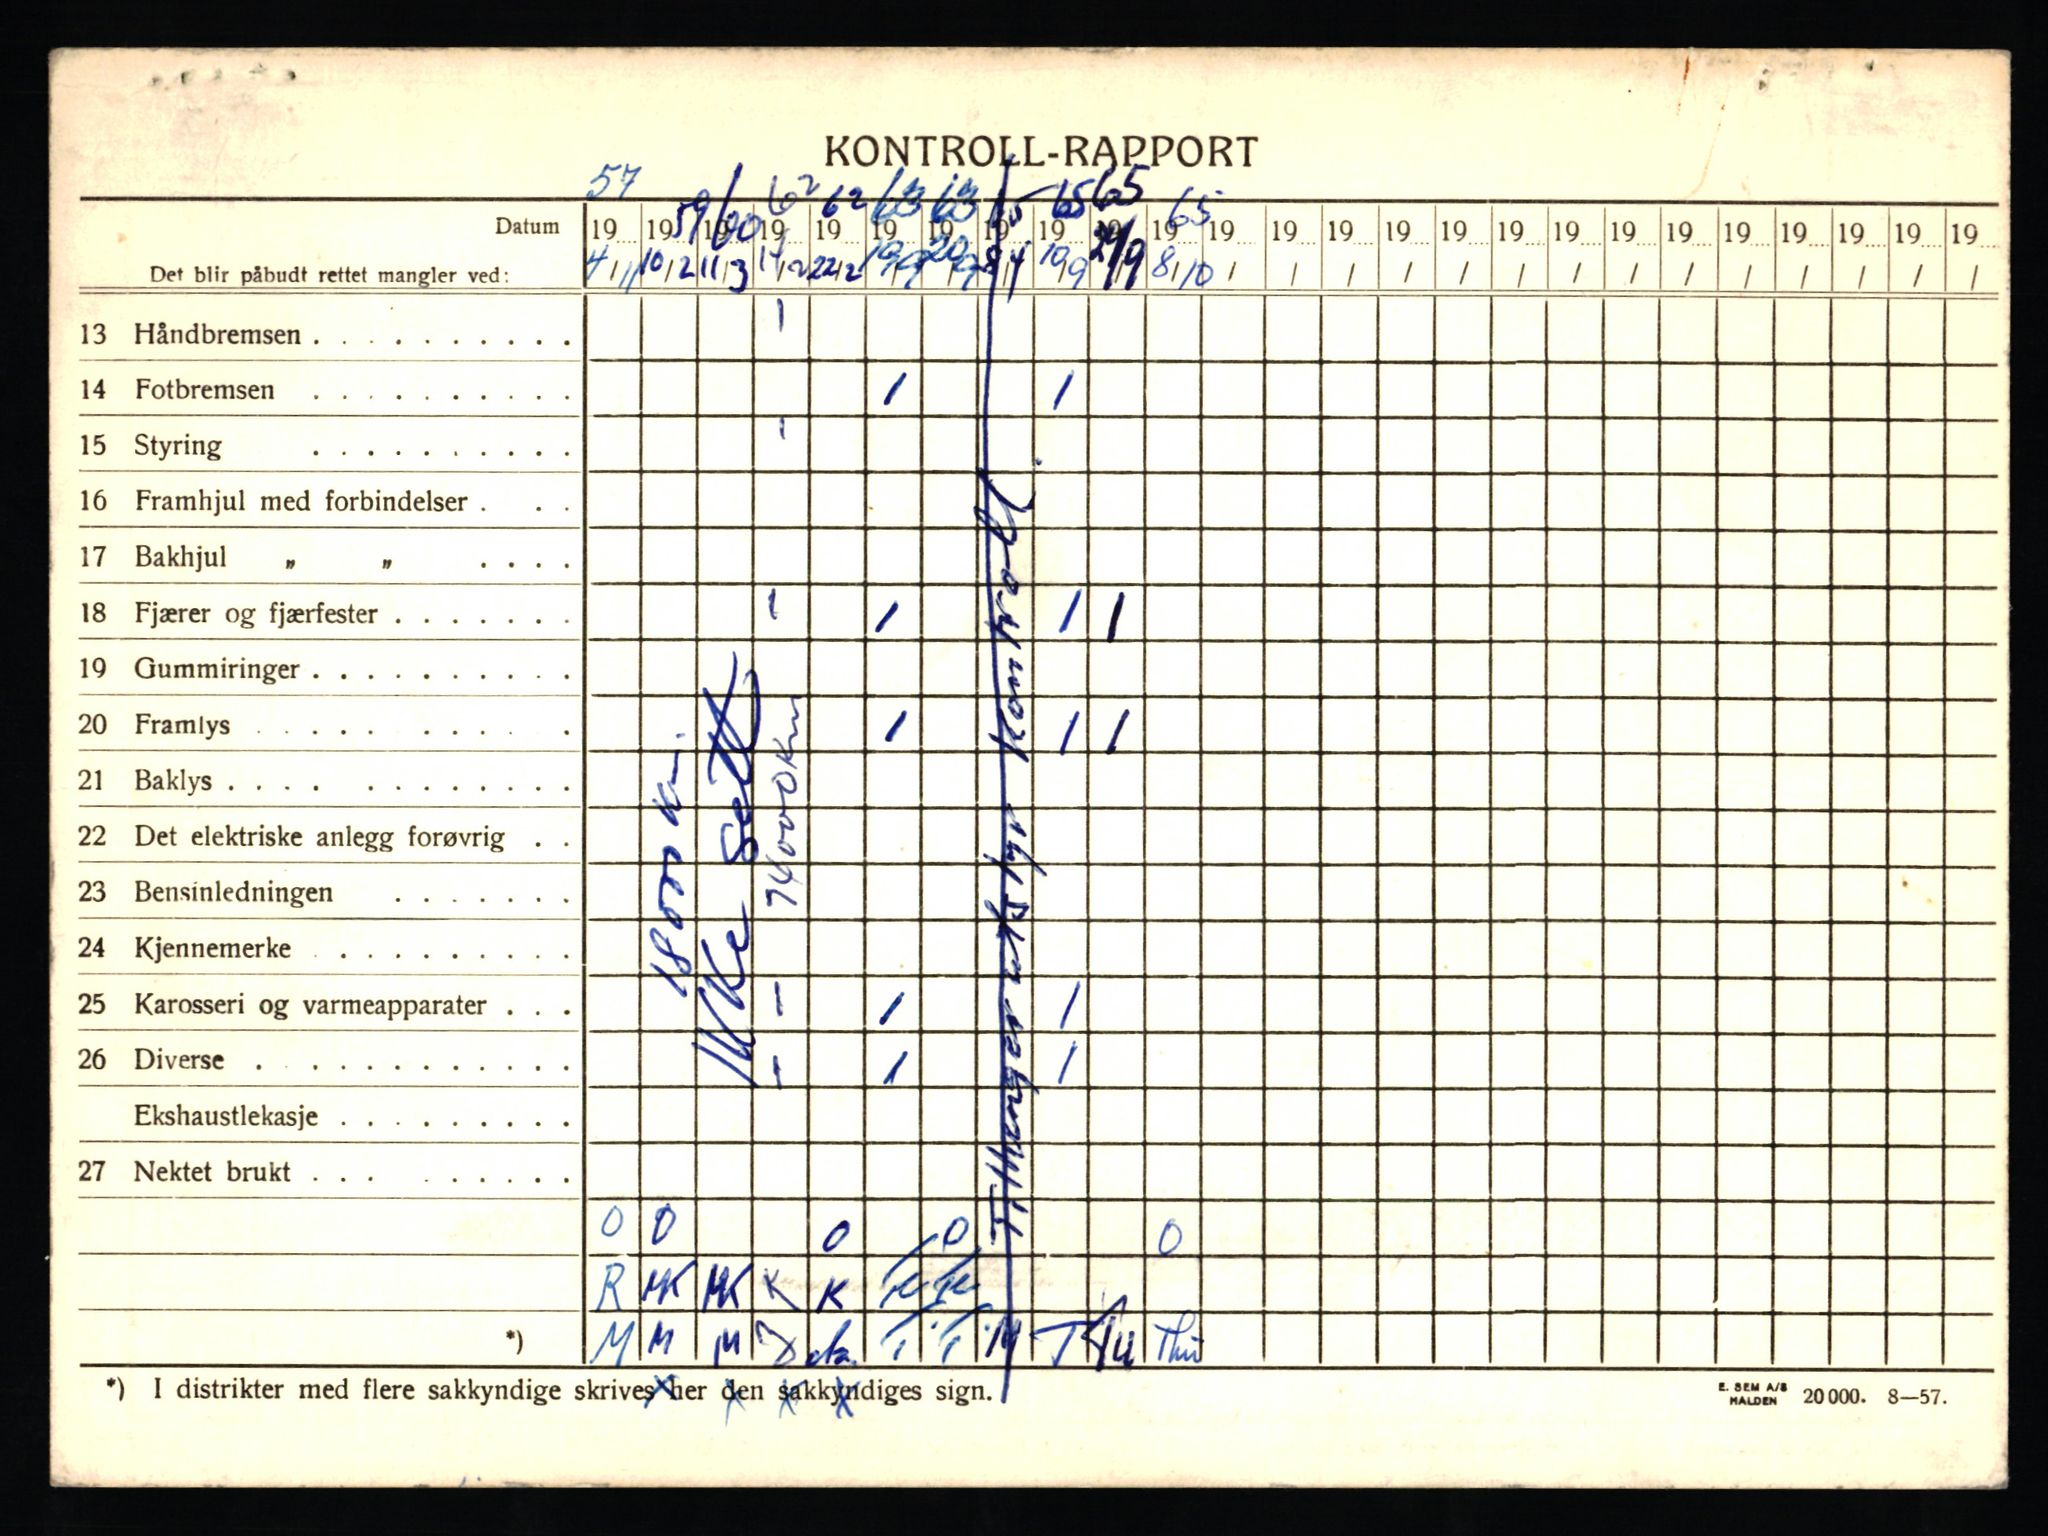 KONTROLL-RAPPORT
57 59 60 62 62 63 63 65 65 65 65
Datum 19 19 19 19 19 19 19 19 19 19 19 19 19 19 19 19 19 19 19 19 19 19 19 19 19
Det blir påbudt rettet mangler ved: 4/11 10/2 11/3 14/2 22/2 19/9 20/9 8/4 10/9 29/9 8/10 / / / / / / / / / / / / / /
13 Håndbremsen . . . . . . . . . . 1
14 Fotbremsen . . . . . . . . . . 1 1
15 Styring . . . . . . . . . . 1
16 Framhjul med forbindelser . . .
17 Bakhjul „ „ . . . .
18 Fjærer og fjærfester . . . . . . . 1 1 1 1
19 Gummiringer . . . . . . . . . .
20 Framlys . . . . . . . . . . 1 1 1
21 Baklys . . . . . . . . . . . .
22 Det elektriske anlegg forøvrig . .
23 Bensinledningen . . . . . . .
24 Kjennemerke . . . . . . . . .
25 Karosseri og varmeapparater . . . 1 1 1
26 Diverse . . . . . . . . . . . 1 1 1
Ekshaustlekasje . . . . . . . . .
27 Nektet brukt . . . . . . . . .
18000 km.
Ikke sett
74000 km
0 0 0 0 0
R MK MK K K
*) M M M
*) I distrikter med flere sakkyndige skrives her den sakkyndiges sign.
E. SEM A/S
HALDEN 20 000. 8—57.